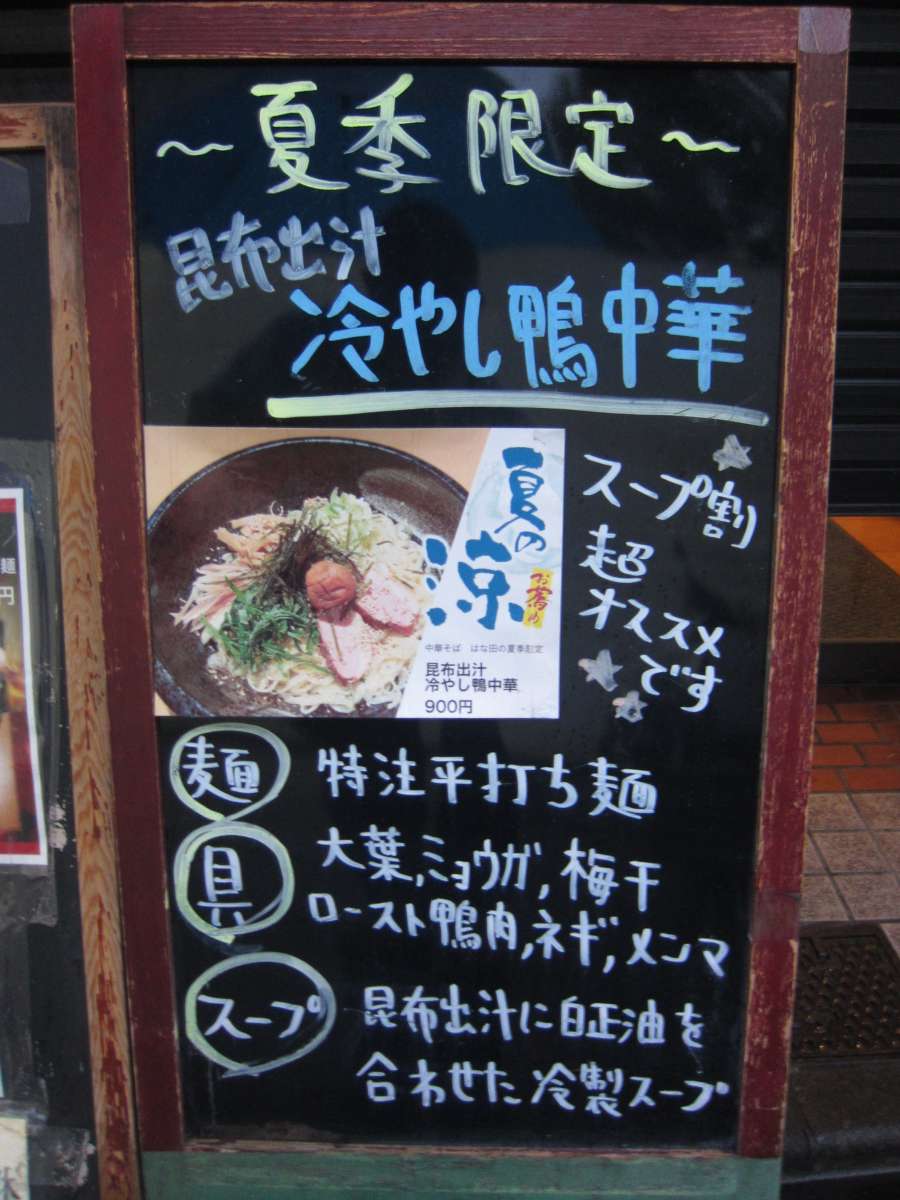 〜夏季限定〜
昆布出汁
冷やし鴨中華
夏の
涼
お薦め
中華そば はな田の夏季限定
昆布出汁
冷やし鴨中華
900円
スープ割
超
オススメ
です
麺
特注平打ち麺
具
大葉,ミョウガ,梅干
ロースト鴨肉,ネギ,メンマ
スープ
昆布出汁に白正油を
合わせた冷製スープ
麺
円